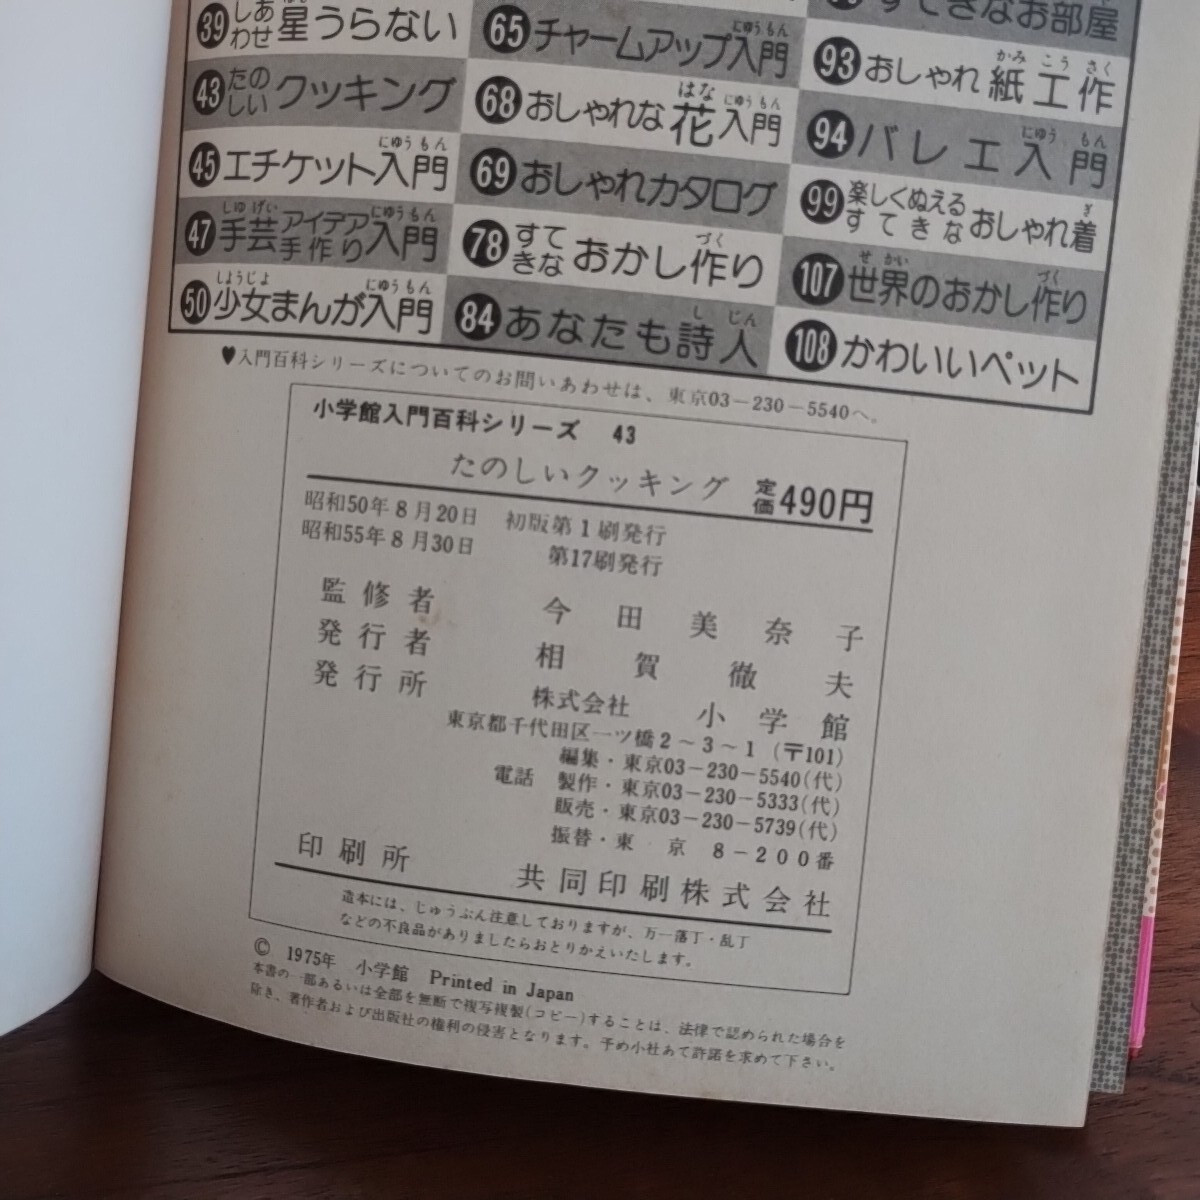 39 しあわせ 星うらない
43 たのしい クッキング
45 エチケット入門
47 手芸アイデア手作り入門
50 少女まんが入門
65 チャームアップ入門
68 おしゃれな花入門
69 おしゃれカタログ
78 すてきな おかし作り
84 あなたも詩人
すてきなお部屋
93 おしゃれ紙工作
94 バレエ入門
99 楽しくぬえるすてきなおしゃれ着
107 世界のおかし作り
108 かわいいペット
♥入門百科シリーズについてのお問いあわせは、東京03-230-5540へ。
小学館入門百科シリーズ 43
たのしいクッキング 定価490円
昭和50年8月20日 初版第1刷発行
昭和55年8月30日 第17刷発行
監修者 今田美奈子
発行者 相賀徹夫
発行所 株式会社 小学館
東京都千代田区一ツ橋2～3～1(〒101)
編集・東京03-230-5540(代)
電話 製作・東京03-230-5333(代)
販売・東京03-230-5739(代)
振替・東京 8-200番
印刷所 共同印刷株式会社
造本には、じゅうぶん注意しておりますが、万一落丁・乱丁
などの不良品がありましたらおとりかえいたします。
© 1975年 小学館 Printed in Japan
本書の一部あるいは全部を無断で複写複製(コピー)することは、法律で認められた場合を
除き、著作者および出版社の権利の侵害となります。予め小社あて許諾を求めて下さい。